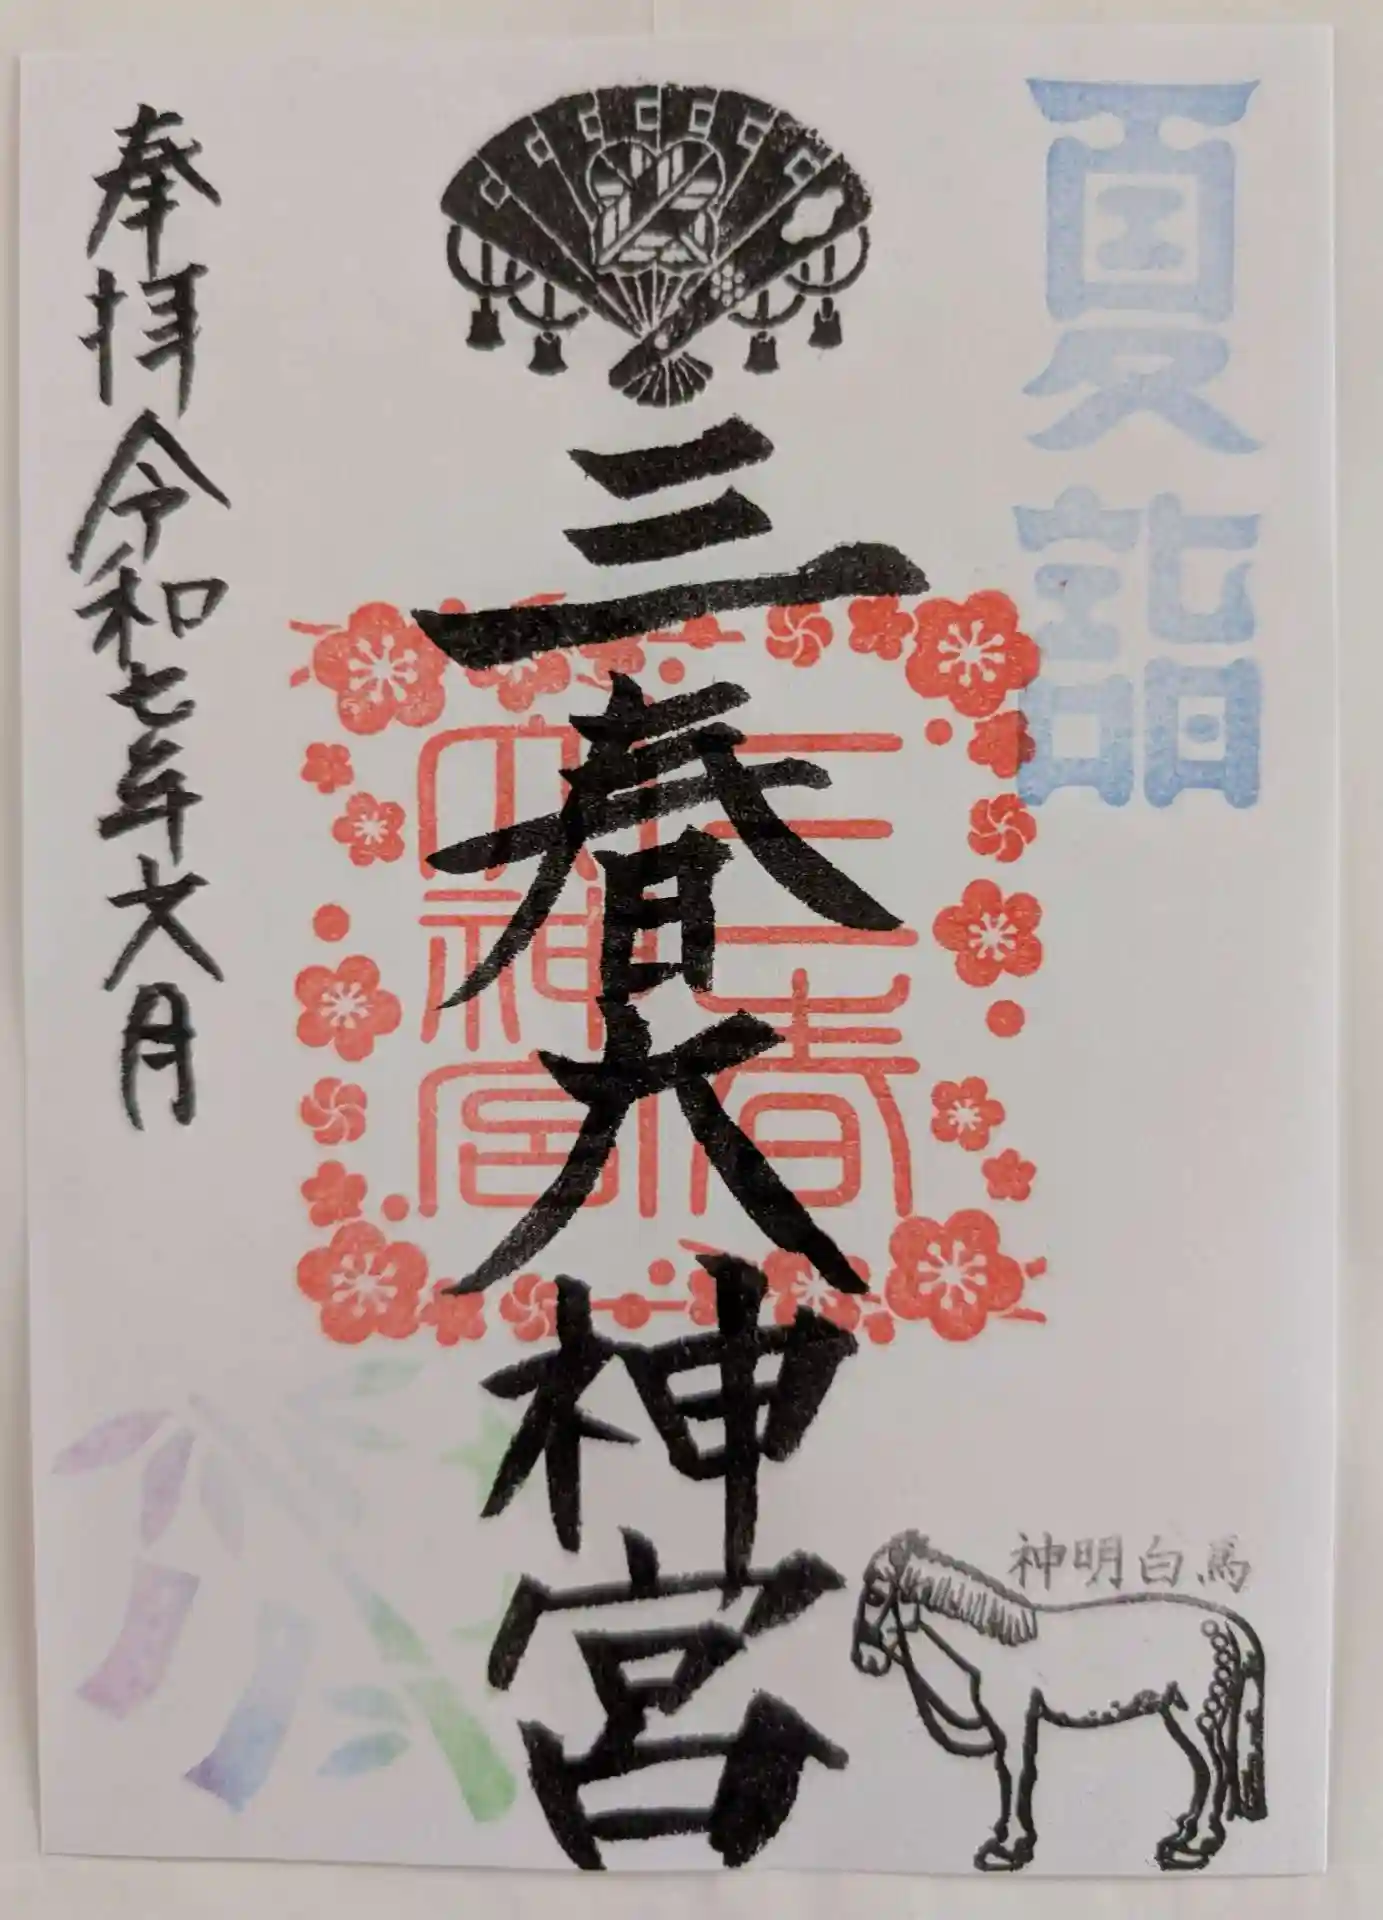 夏詣
三春大神宮
三春
大神宮
奉拝 令和七年六月
神明白馬